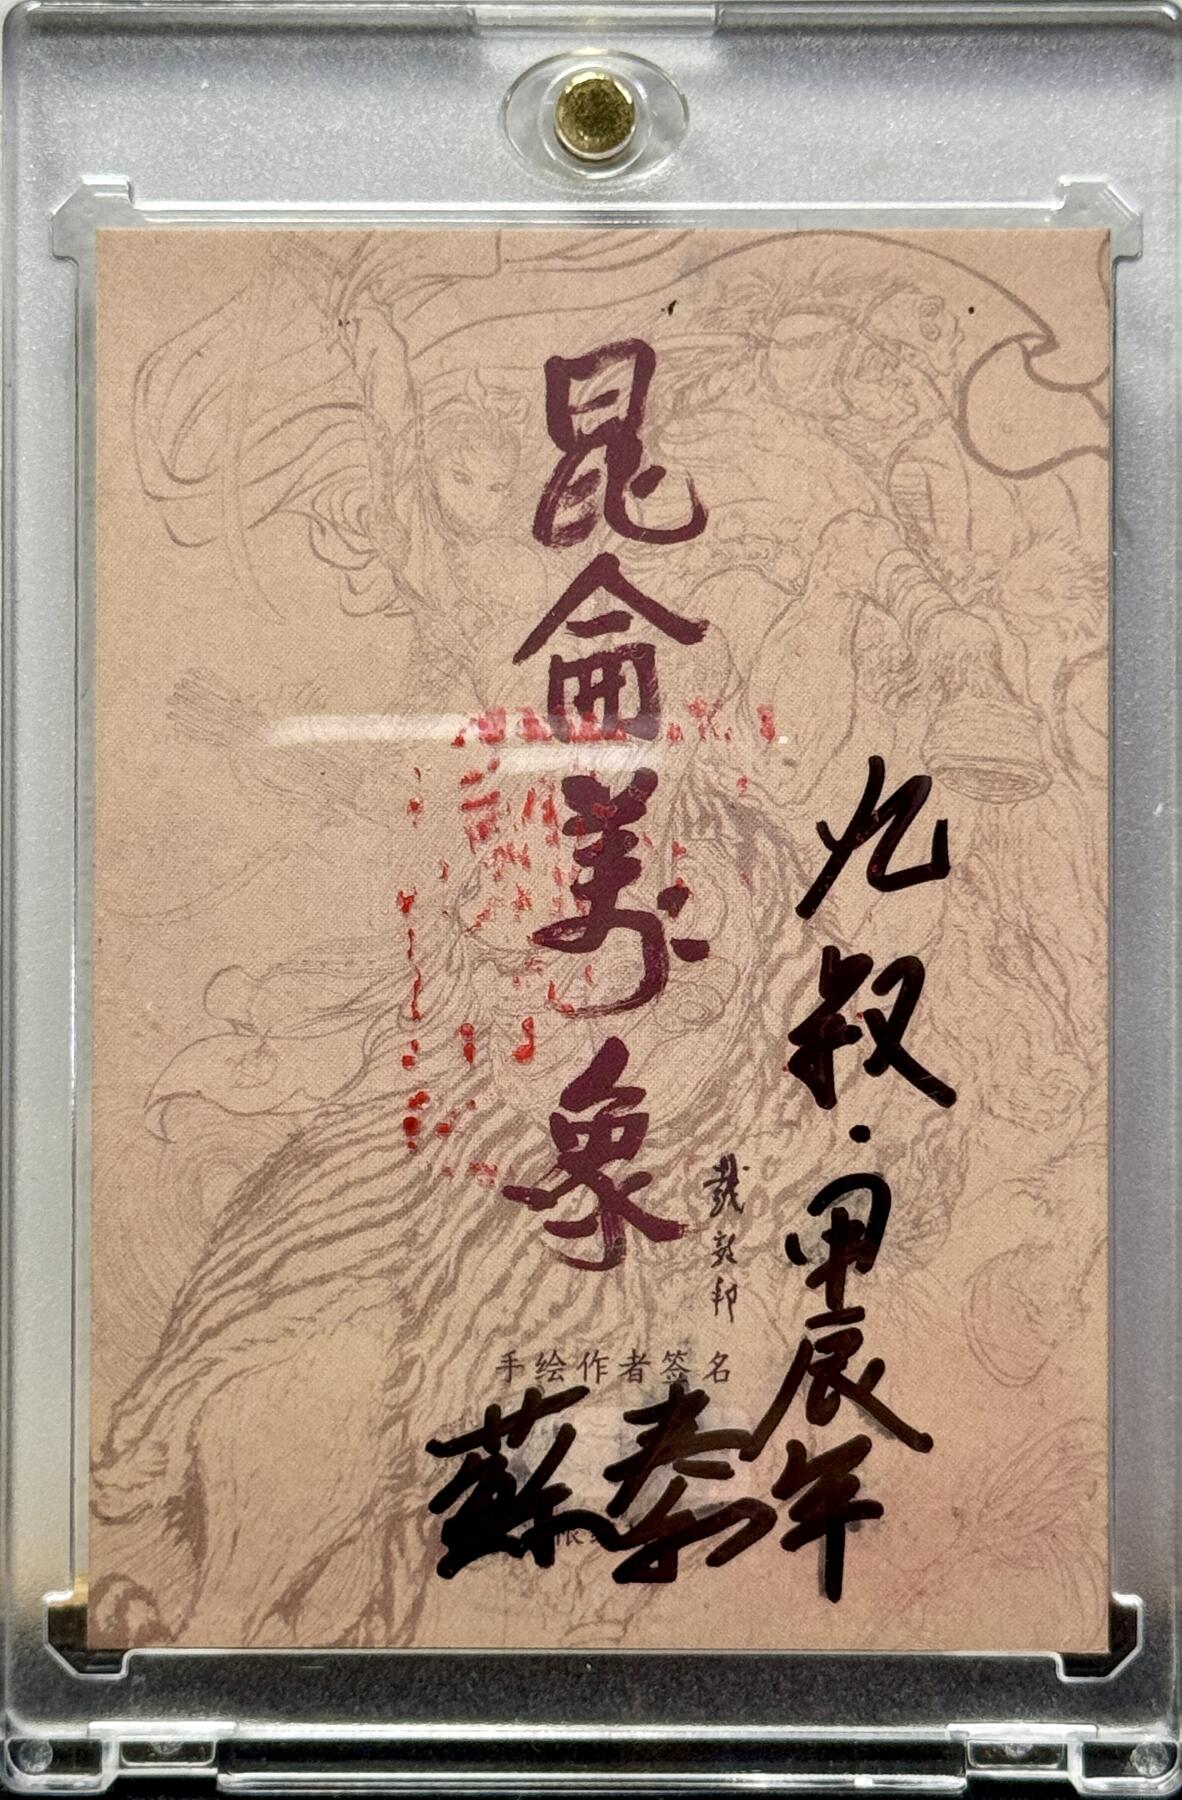 昆侖萬象
戴敦邦
九叔·甲辰年
手绘作者签名
蘇泰